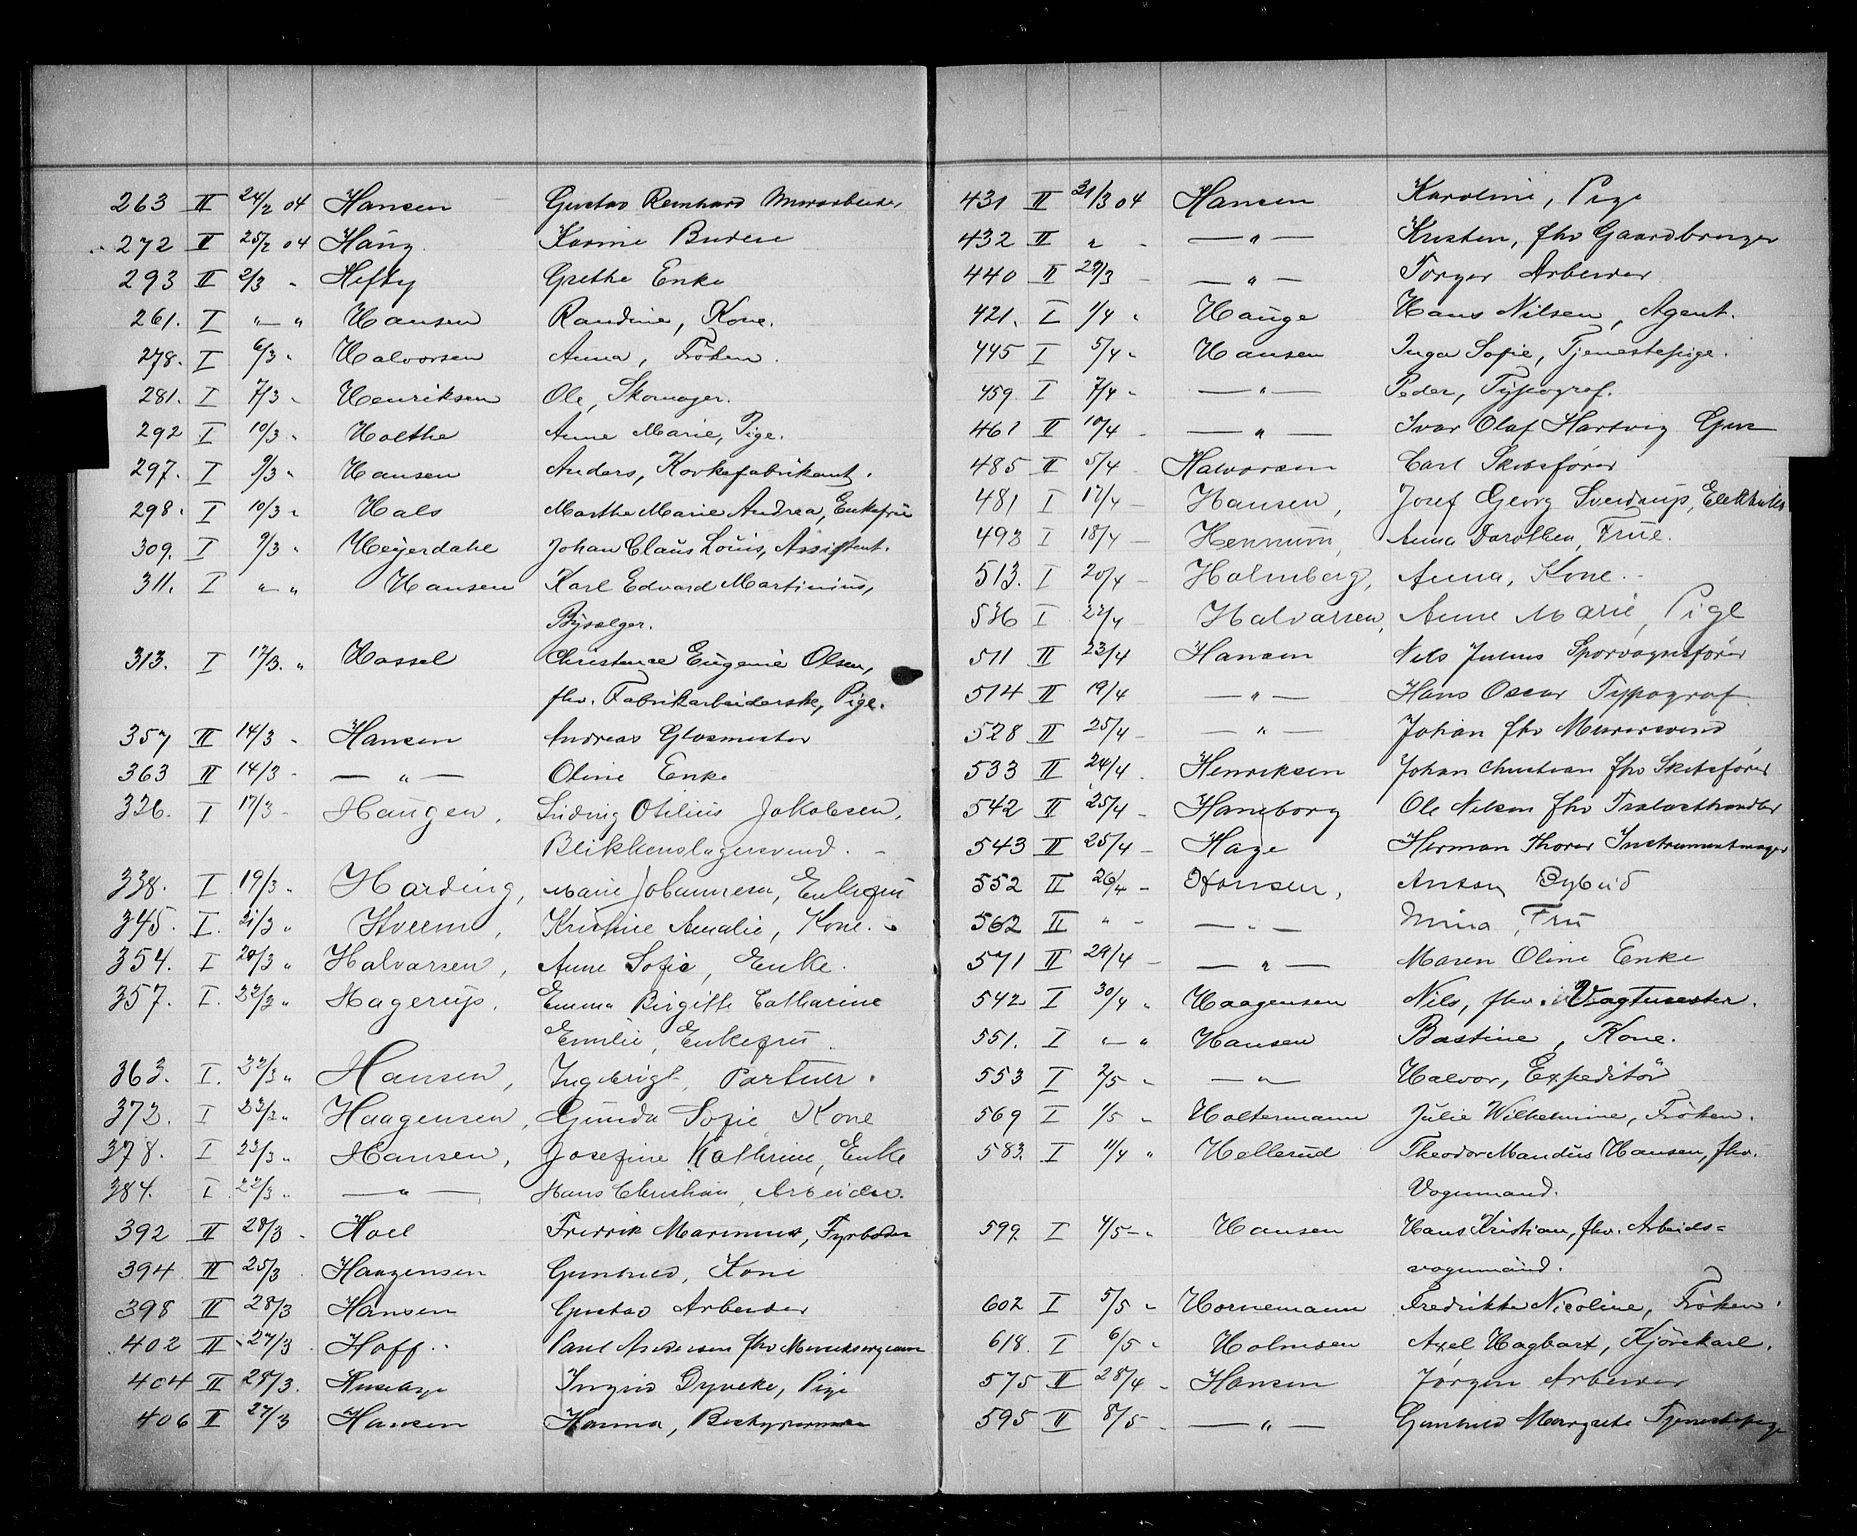 263 II 24/2 04 Hansen Gustav Reinhard Murarbeider
272 II 25/2 04 Haug Karine Budeie
293 II 2/3 " Hefty Grethe Enke
261. I " — " Hansen Randine, Kone.
278. I 6/3 " Halvorsen Anna, Frøken.
281. I 7/3 " Henriksen Ole, Skomager.
292 I 10/3 " Holthe Anne Marie, Pige.
297. I 9/3 " Hansen Anders, Korkefabrikant.
298. I 10/3 " Hals Marthe Marie Andrea, Enkefru
309. I 9/3 " Heyerdahl Johan Claus Louis, Assistent.
311. I " " Hansen Karl Edvard Martinius,
Bysælger.
313. I 17/3. " Hassel Christence Eugenie Olsen,
fhv. Fabrikarbeiderske, Pige.
357 II 14/3 - Hansen Andreas Glasmester
363 II 14/3 - — " — Oline Enke
326. I 17/3 - Haugen, Ludvig Otilius Jakobsen,
Blikkenslagersvend. -
338. I 19/3 " Harding, Marie Johannesen, Enkefru
345. I. 21/3 " Hveem, Kristine Amalie, Kone.
354. I 20/3 " Halvorsen, Anne Sofie, Enke.
357. I. 22/3 " Hagerup, Emma Birgitte Catharine
Emilie, Enkefru.
363. I. 22/3 " Hansen, Ingebrigt, Partner.
372. I 22/3 " Haagensen, Gunda Sofie Kone
378. I 23/3 " Hansen, Josefine Kathrine, Enke
384. I 22/3 " — " — Hans Christian, Arbeider.
392 II 28/3 - Hoel Fredrik Marinius, Fyrbøder
394 II 25/3 Haagensen Gunhild, Kone
398 II 28/3 Hansen Gustav Arbeider
402 II 27/3 Hoff Paul Andersen fhv
404 II 28/3. Ingrid Dyveke, Pige
406 II 27/3 Hansen Hanna, Bestyrerinde
431 II 31/3 04 Hansen Karoline, Pige
432 II " - — " — Kristen, fhv Gaardbruger
440 II 29/3 - — " — Torger Arbeider
421. I 1/4 " Hauge Hans Nilsen, Agent.
445 I 5/4 " Hansen Inga Sofie, Tjenestepige.
459 I 7/4 " — " — Peder, Typograf.
461 II 10/4 - — " — Ivar Olaf Hartvig
485 II 5/4 - Halvorsen Carl Skibsfører
481 I 17/4 - Hansen, Josef Georg Sverdrup,
493 I 18/4 - Hennum, Anna Dorothea, Frue.
513. I 20/4 - Holmberg, Anna, Kone. -
536 I 22/4 - Halvorsen, Anne Marie, Pige
511 II 23/4 Hansen Nils Julius Sporvognsfører
514 II 19/4 — " — Hans Oscar Typograf
528 II 25/4 - — " — Johan fhv Murersvend
533 II 24/4 Henriksen Johan Christian fhv Skibsfører
542 II 25/4 - Haneborg Ole Nilsen fhv Trælasthandler
543 II 25/4 - Hage Herman Thorer Instrumentmager
552 II 26/4 - Hansen, Anton Bybud
562 II " - — " — Mina, Fru
571 II 29/4 - — " — Maren Oline Enke
542 I 30/4 " Haagensen Nils, fhv. Vagtmester.
551. I " — " Hansen Bastine, Kone.
553 I 2/5 " — " — Halvor, Expeditør
569 I 1/5 " Holtermann Julie Wilhelmine, Frøken.
583. I 11/4 " Hellerud Theodor Mandius Hansen, fhv.
Vognmand.
599 I 4/5 - " Hansen Hans Kristian, fhv. Arbeids=
vognmand.
602 I 5/5 " Hornemann Fredrikke Nicoline, Frøken.
618. I 6/5 " Holmsen Axel Hagbart, Kjørekarl.
575 II 28/4 " Hansen Jørgen Arbeider
595 II 8/5 - — " — Gunhild Margrete Tjenestepige